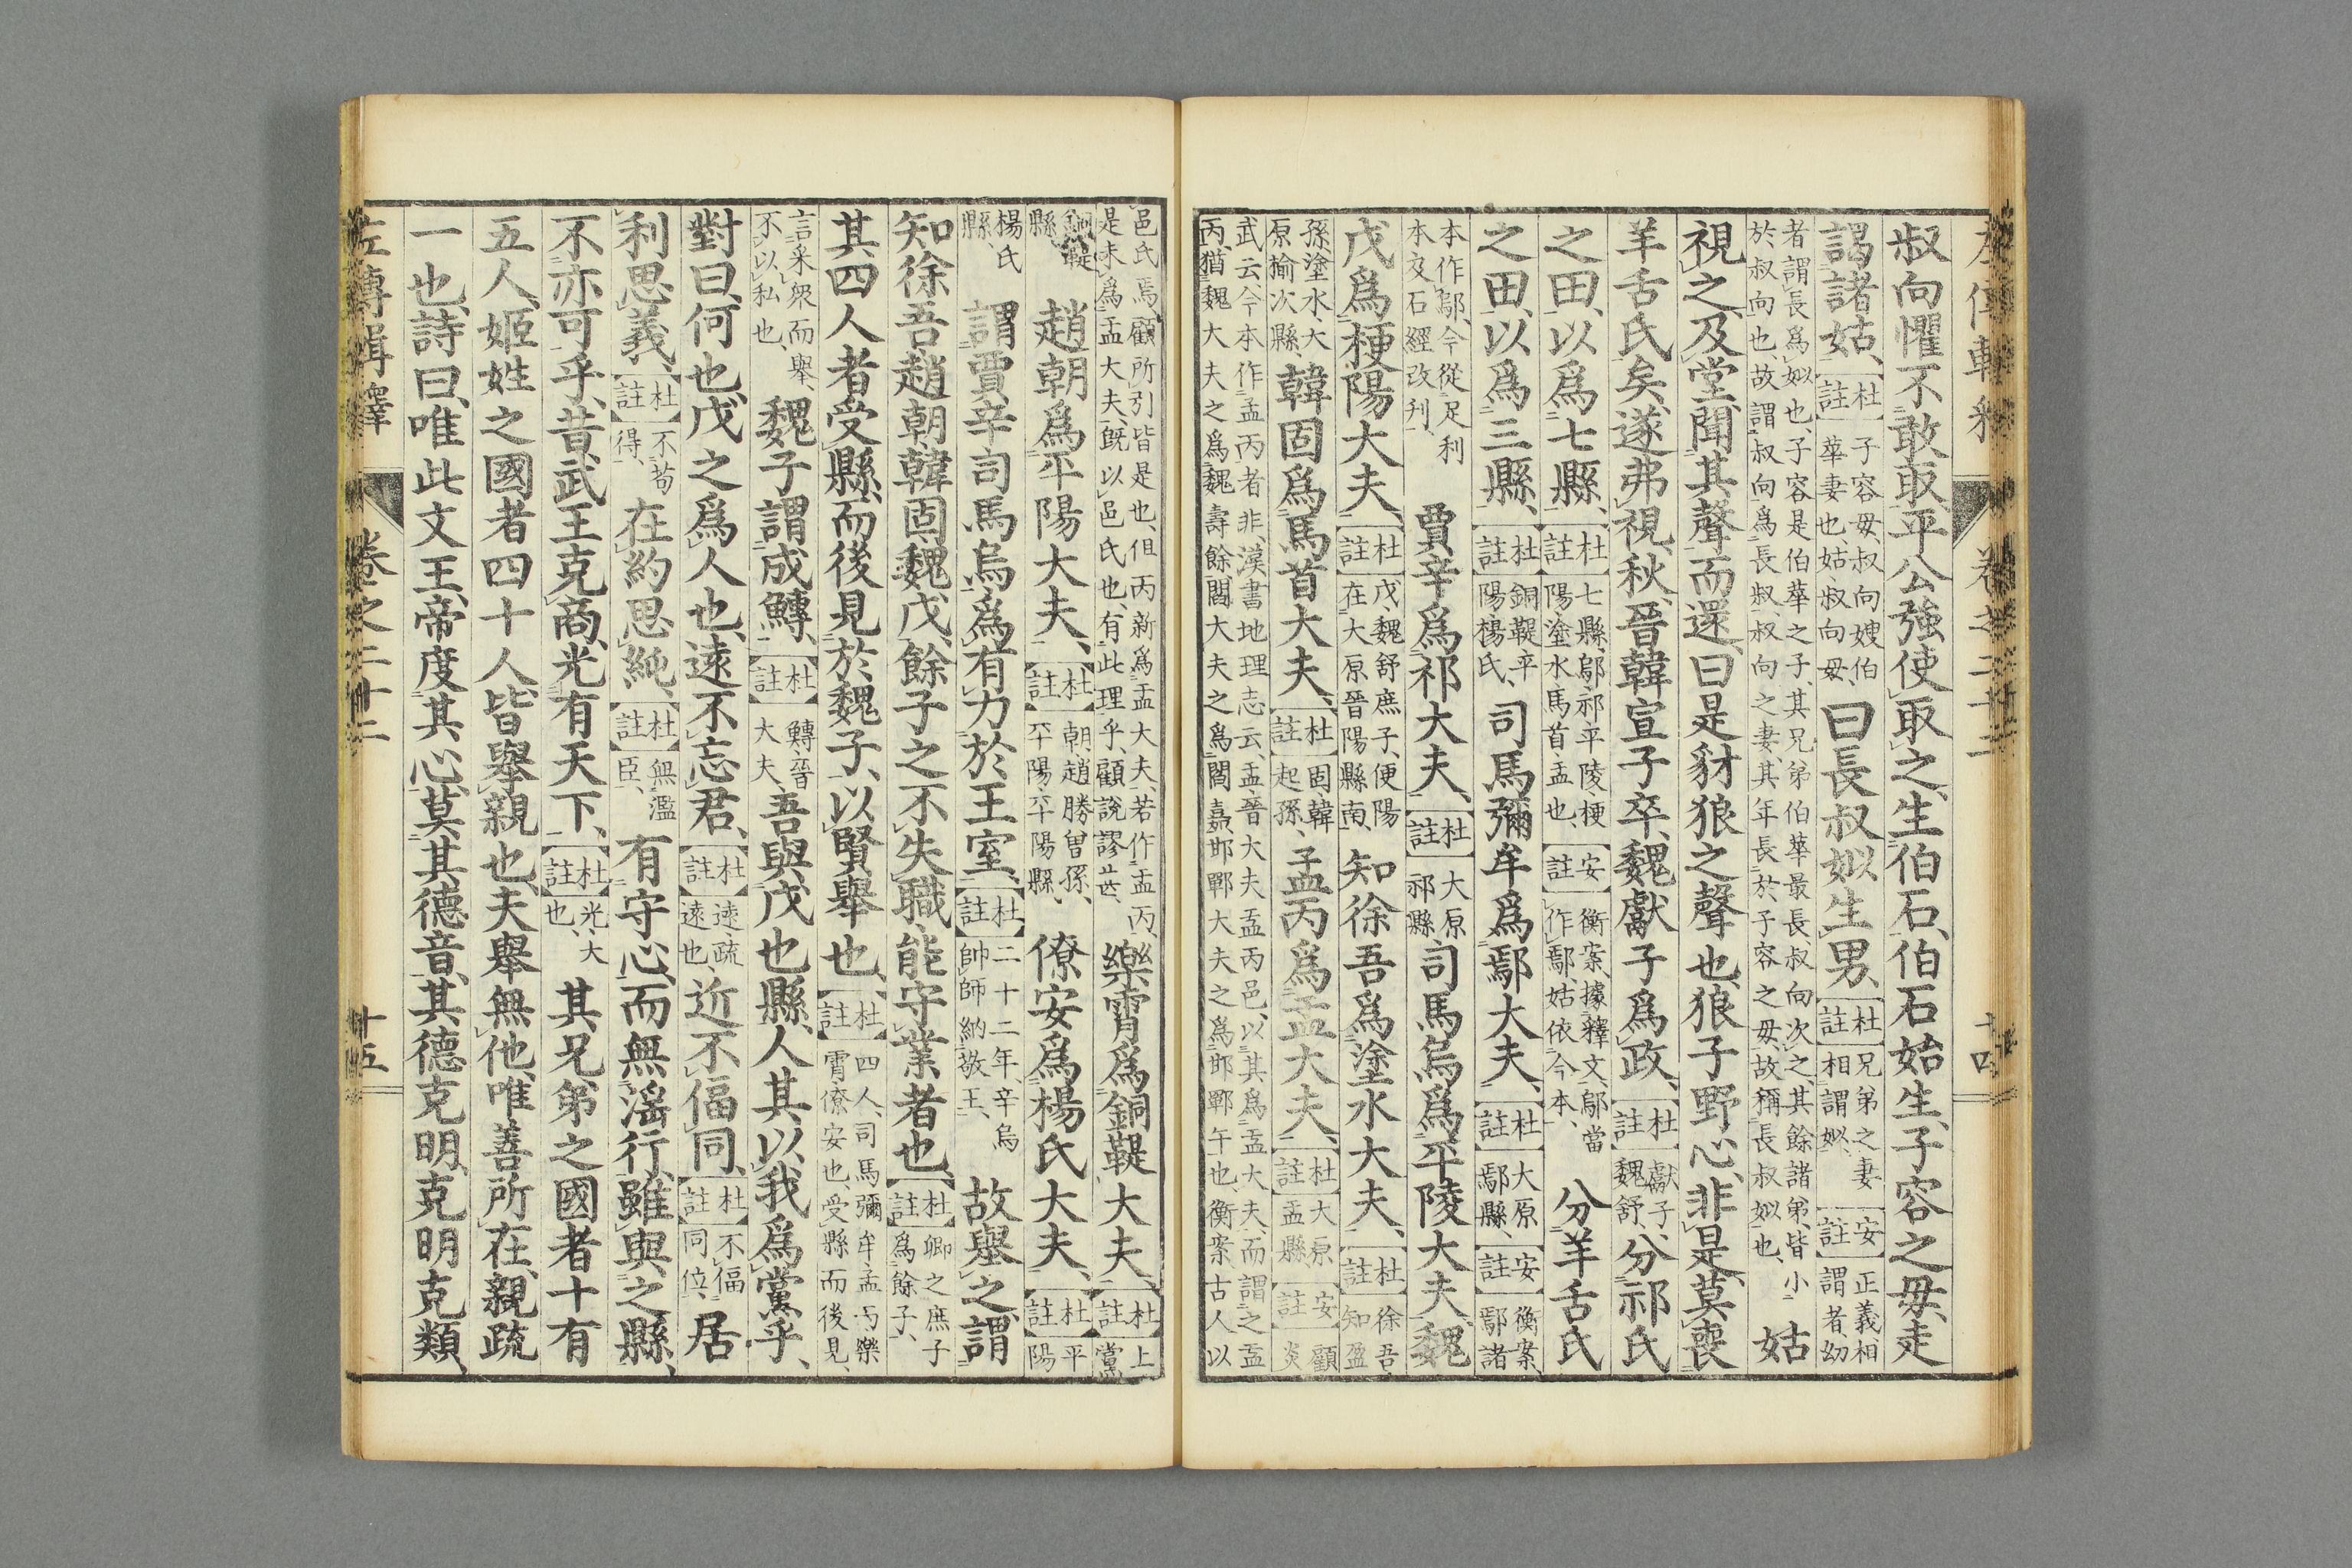 左傳輯釋 卷之二十二 十四
叔向懼不敢取、平公強使取之、生伯石、伯石始生、子容之母走
謁諸姑、杜註子容母、叔向嫂、伯華妻也、姑、叔向母、曰長叔姒生男、杜註兄弟之妻相謂姒、安註正義、相謂者、幼
者謂長爲姒也、子容是伯華之子、其兄弟伯華最長、叔向次之、其餘諸弟、皆小於叔向也、故謂叔向爲長叔、叔向之妻、其年長於子容之母、故稱長叔姒也、姑
視之、及堂、聞其聲而還、曰是豺狼之聲也、狼子野心、非是莫喪
羊舌氏矣、遂弗視、秋、晉韓宣子卒、魏獻子爲政、杜註獻子、魏舒、分祁氏
之田、以爲七縣、杜註七縣、鄔祁平陵梗陽塗水馬首盂也、安註衡案、據釋文、鄔當作鄢、姑依今本、分羊舌氏
之田、以爲三縣、杜註銅鞮平陽楊氏、司馬彌牟爲鄢大夫、杜註大原鄢縣、安註衡案、鄢諸
本作鄔、今從足利本及石經改刋、賈辛爲祁大夫、杜註大原祁縣、司馬烏爲平陵大夫、魏
戊爲梗陽大夫、杜註戊、魏舒庶子、便陽在大原晉陽縣南、知徐吾爲塗水大夫、杜註徐吾、知盈
孫、塗水、大原榆次縣、韓固爲馬首大夫、杜註固、韓起孫、孟丙爲盂大夫、杜註大原盂縣、安註顧炎
武云、今本作孟丙者非、漢書地理志云、盂、晉大夫盂丙邑、以其爲盂大夫、而謂之盂丙、猶魏大夫之爲魏壽餘、閻大夫之爲閻嘉、邯鄲大夫之爲邯鄲午也、衡案、古人以
邑氏焉、顧所引皆是也、但丙新爲盂大夫、若作盂丙、是未爲盂大夫、既以邑氏也、有此理乎、顧說謬甚、樂霄爲銅鞮大夫、杜註上黨
銅鞮縣、趙朝爲平陽大夫、杜註朝、趙勝曾孫、平陽、平陽縣、僚安爲楊氏大夫、杜註平陽
楊氏縣、謂賈辛司馬烏、爲有力於王室、杜註二十二年、辛烏帥師納敬王、故舉之、謂
知徐吾趙朝韓固魏戊、餘子之不失職、能守業者也、杜註卿之庶子爲餘子、
其四人者、受縣而後見於魏子、以賢舉也、杜註四人、司馬彌牟孟丙樂霄僚安也、受縣而後見、
言采衆而舉、不以私也、魏子謂成鱄、杜註鱄、晉大夫、吾與戊也縣、人其以我爲黨乎、
對曰、何也、戊之爲人也、遠不忘君、杜註遠、疏遠也、近不偪同、杜註不偪同位、居
利思義、杜註不苟得、在約思純、杜註無濫臣、有守心、而無淫行、雖與之縣、
不亦可乎、昔武王克商、光有天下、杜註光、大也、其兄弟之國者十有
五人、姬姓之國者四十人、皆舉親也、夫舉無他、唯善所在、親疏
一也、詩曰、唯此文王、帝度其心、莫其德音、其德克明、克明克類、
左傳輯釋 卷之二十二 十五